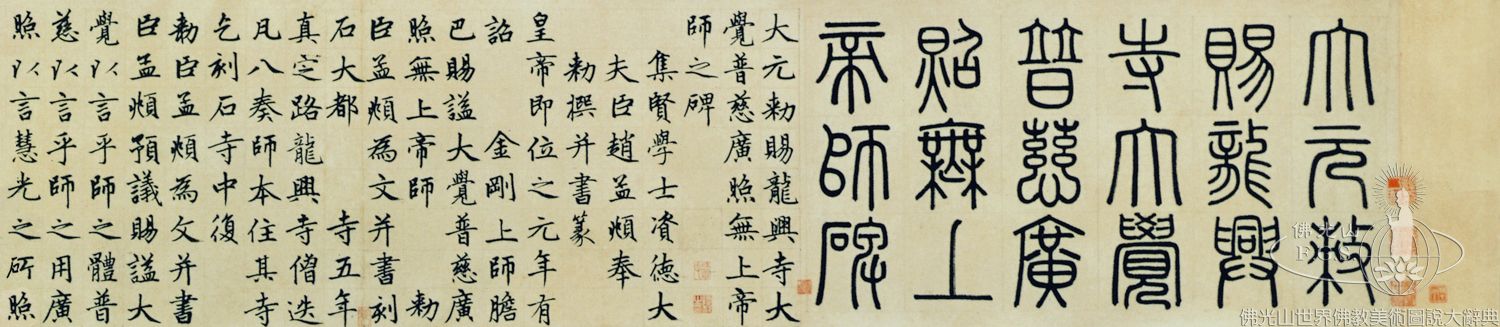 大元敕
賜龍興
寺大覺
普慈廣
照無上
帝師碑
大元勅賜龍興寺大
覺普慈廣照無上帝
師之碑
集賢學士資德大
夫臣趙孟頫奉
勅撰并書篆
皇帝即位之元年有
詔 金剛上師膽
巴賜謚大覺普慈廣
照無上帝師 勅
臣孟頫為文并書刻
石大都 寺五年
真定路龍興寺僧迭
凡八奏師本住其寺
乞刻石寺中復
勅臣孟頫為文并書
臣孟頫預議賜謚大
覺以言乎師之體普
慈以言乎師之用廣
照以言慧光之所照
佛光山
佛光山世界佛教美術圖說大辭典